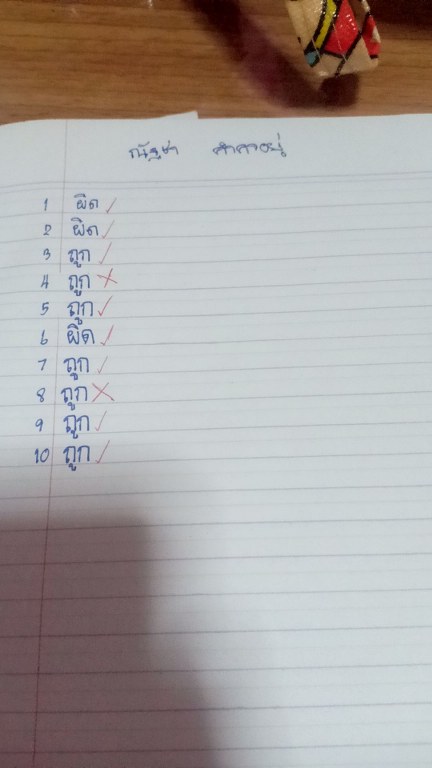 ณัฐชา
1 ผิด ✓
2 ผิด ✓
3 ถูก ✓
4 ถูก ✗
5 ถูก ✓
6 ผิด ✓
7 ถูก ✓
8 ถูก ✗
9 ถูก ✓
10 ถูก ✓